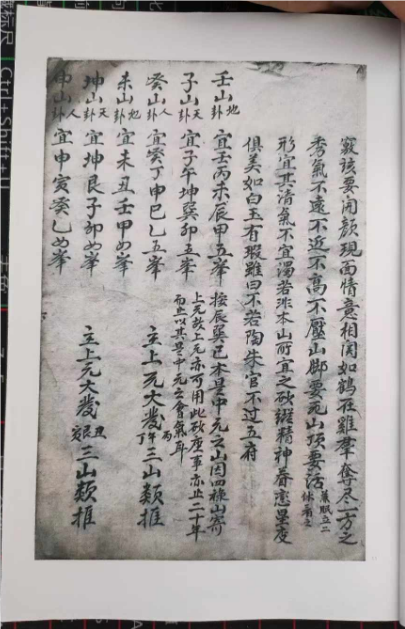 竅孩要開顏現面情意相関如鶴在雞羣奪尽一方之
秀氣不遠不近不高不壓山脚要死山頂要活
形宜其清氣不宜濁若非本山所宜之砂縱精神眷恋星度
俱美如白玉有瑕雖曰不若陶朱官不过五府
壬山 地卦 宜壬丙未辰甲五峯 按辰巽巳本是中元之山因四祿山寄
子山 天卦 宜子午坤巽卯五峯 上元故上元亦可用此砂應事亦止二十年
而止以其是中元之會氣耳
癸山 人卦 宜癸丁申巳乙五峯 主上元大發 丙丁午 三山類推
未山 地卦 宜未丑壬甲四峯
坤山 天卦 宜坤艮子卯四峯 主上元大發 三山類推
申山 人卦 宜申寅癸乙四峯
Ctrl+Shift+U